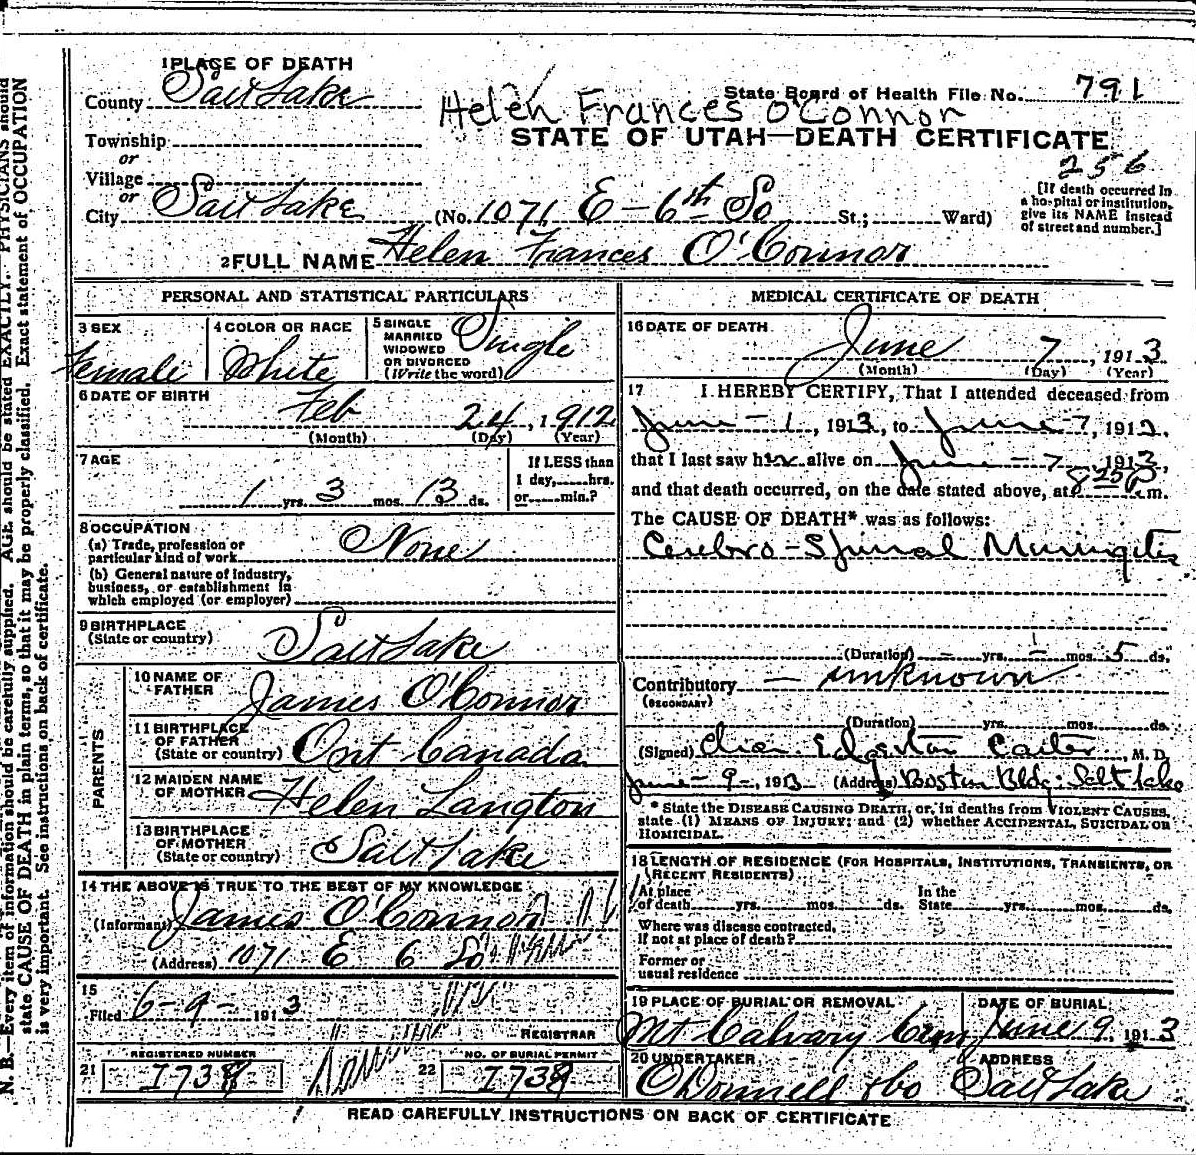 1 PLACE OF DEATH
County Salt Lake
State Board of Health File No. 791
Helen Frances O'Connor
STATE OF UTAH—DEATH CERTIFICATE
Township
or
Village
or
City Salt Lake (No. 1071 E - 6th So St.; Ward)
256
[If death occurred in a hospital or institution, give its NAME instead of street and number.]
2 FULL NAME Helen Frances O'Connor
PERSONAL AND STATISTICAL PARTICULARS
3 SEX Female
4 COLOR OR RACE White
5 SINGLE MARRIED WIDOWED OR DIVORCED (Write the word) Single
6 DATE OF BIRTH
Feb 24, 1912
(Month) (Day) (Year)
7 AGE
1 yrs. 3 mos. 13 ds.
If LESS than 1 day, hrs. or min.?
8 OCCUPATION
(a) Trade, profession or particular kind of work None
(b) General nature of industry, business, or establishment in which employed (or employer)
9 BIRTHPLACE
(State or country) Salt Lake
PARENTS
10 NAME OF FATHER James O'Connor
11 BIRTHPLACE OF FATHER (State or country) Ont Canada
12 MAIDEN NAME OF MOTHER Helen Langton
13 BIRTHPLACE OF MOTHER (State or country) Salt Lake
14 THE ABOVE IS TRUE TO THE BEST OF MY KNOWLEDGE
(Informant) James O'Connor
(Address) 1071 E 6 So
15
Filed 6-9- 1913
REGISTRAR
21 REGISTERED NUMBER
22 NO. OF BURIAL PERMIT
MEDICAL CERTIFICATE OF DEATH
16 DATE OF DEATH
June 7, 1913
(Month) (Day) (Year)
17 I HEREBY CERTIFY, That I attended deceased from
June - 1, 1913, to June - 7, 1913,
that I last saw her alive on June - 7, 1913,
and that death occurred, on the date stated above, at 825 P m.
The CAUSE OF DEATH* was as follows:
Cerebro-Spinal Meningitis
(Duration) - yrs. - mos. 5 ds.
Contributory — unknown
(SECONDARY)
(Duration) yrs. mos. ds.
(Signed) Edgerton Carter, M. D.
June - 9 - 1913 (Address) Boston Bldg. Salt Lake
* State the DISEASE CAUSING DEATH, or, in deaths from VIOLENT CAUSES, state (1) MEANS OF INJURY; and (2) whether ACCIDENTAL, SUICIDAL OR HOMICIDAL.
18 LENGTH OF RESIDENCE (FOR HOSPITALS, INSTITUTIONS, TRANSIENTS, OR RECENT RESIDENTS)
At place of death yrs. mos. ds. In the State yrs. mos. ds.
Where was disease contracted, if not at place of death?
Former or usual residence
19 PLACE OF BURIAL OR REMOVAL DATE OF BURIAL
Mt Calvary Cem June 9, 1913
20 UNDERTAKER ADDRESS
O'Donnell & Co Salt Lake
READ CAREFULLY INSTRUCTIONS ON BACK OF CERTIFICATE
N. B.—Every item of information should be carefully supplied. AGE should be stated EXACTLY. PHYSICIANS should
state CAUSE OF DEATH in plain terms, so that it may be properly classified. Exact statement of OCCUPATION
is very important. See instructions on back of certificate.